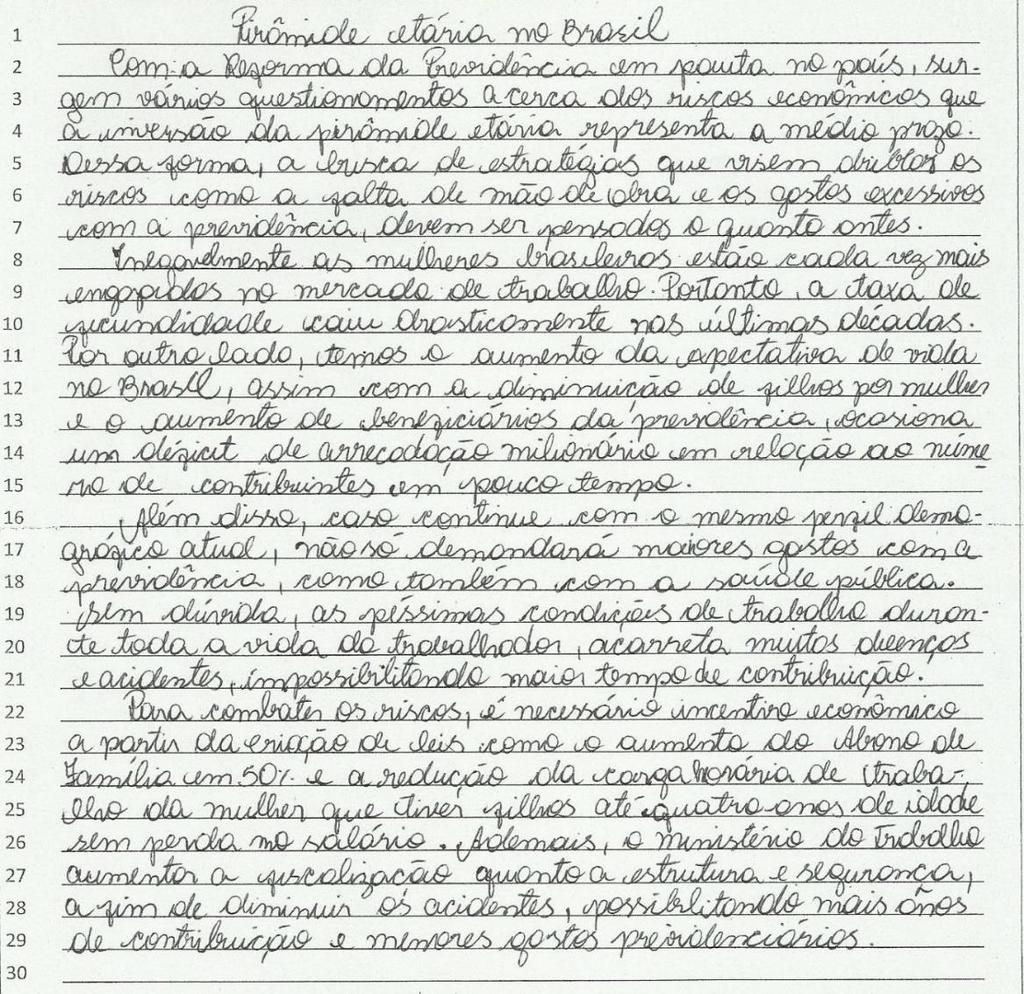 1 Pirâmide etária no Brasil
2 Com a Reforma da Previdência em pauta no país, sur-
3 gem vários questionamentos acerca dos riscos econômicos que
4 a inversão da pirâmide etária representa a médio prazo.
5 Dessa forma, a busca de estratégias que visem driblar os
6 riscos como a falta de mão de obra e os gastos excessivos
7 com a previdência, devem ser pensados o quanto antes.
8 Inegavelmente as mulheres brasileiras estão cada vez mais
9 engajadas no mercado de trabalho. Portanto, a taxa de
10 fecundidade caiu drasticamente nas últimas décadas.
11 Por outro lado, temos o aumento da expectativa de vida
12 no Brasil, assim com a diminuição de filhos por mulher
13 e o aumento de beneficiários da previdência, ocasiona
14 um déficit de arrecadação milionário em relação ao núme
15 ro de contribuintes em pouco tempo.
16 Além disso, caso continue com o mesmo perfil demo-
17 gráfico atual, não só demandará maiores gastos com a
18 previdência, como também com a saúde pública.
19 Sem dúvida, as péssimas condições de trabalho duran-
20 te toda a vida do trabalhador, acarreta muitas doenças
21 e acidentes, impossibilitando maior tempo de contribuição.
22 Para combater os riscos, é necessário incentivo econômico
23 a partir da criação de leis como o aumento do Abono de
24 Família em 50% e a redução da carga horária de traba-
25 lho da mulher que tiver filhos até quatro anos de idade
26 sem perda no salário. Ademais, o ministério do Trabalho
27 aumentar a fiscalização quanto a estrutura e segurança,
28 a fim de diminuir os acidentes, possibilitando mais anos
29 de contribuição e menores gastos previdenciários.
30